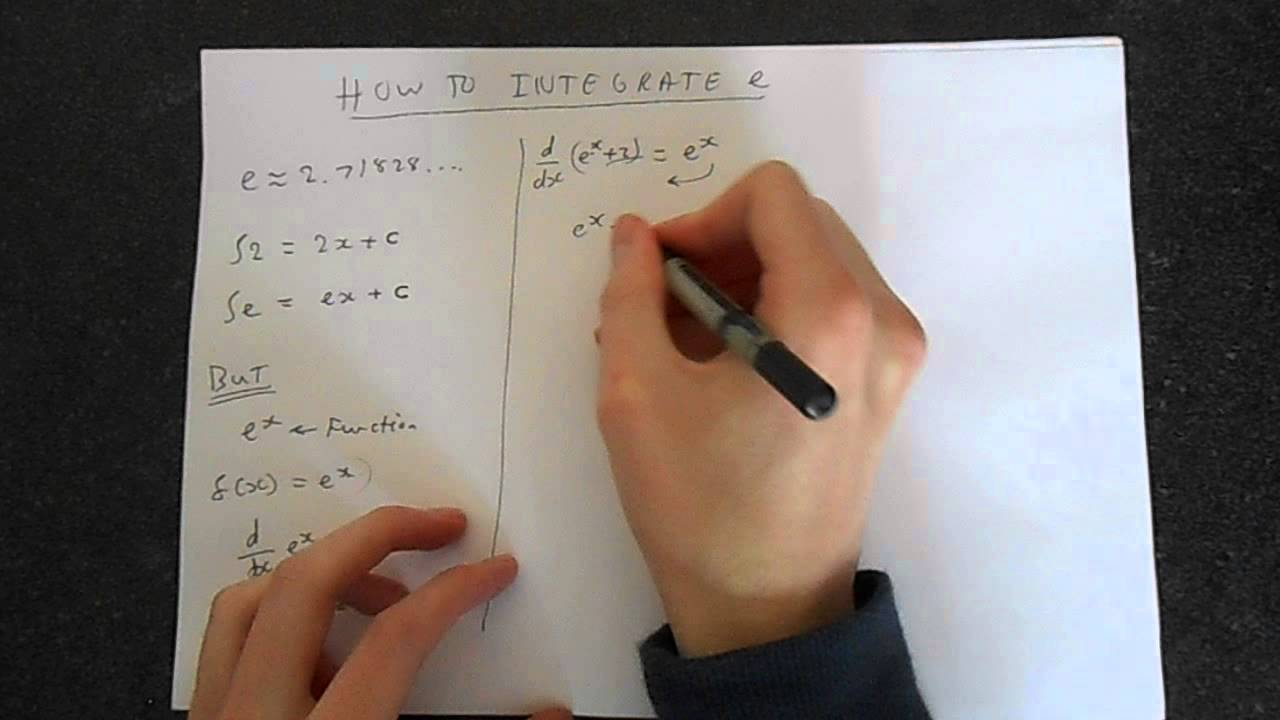 HOW TO INTEGRATE e
e ≈ 2.71828....
∫2 = 2x + c
∫e = ex + c
BUT
e^x ← Function
f(x) = e^x
d/dx e^x
d/dx (e^x + 2) = e^x
e^x